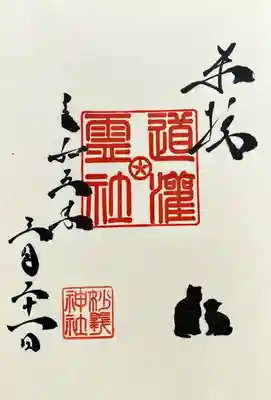 奉拝
道灌
霊社
令和五年
三月二十一日
妙義
神社